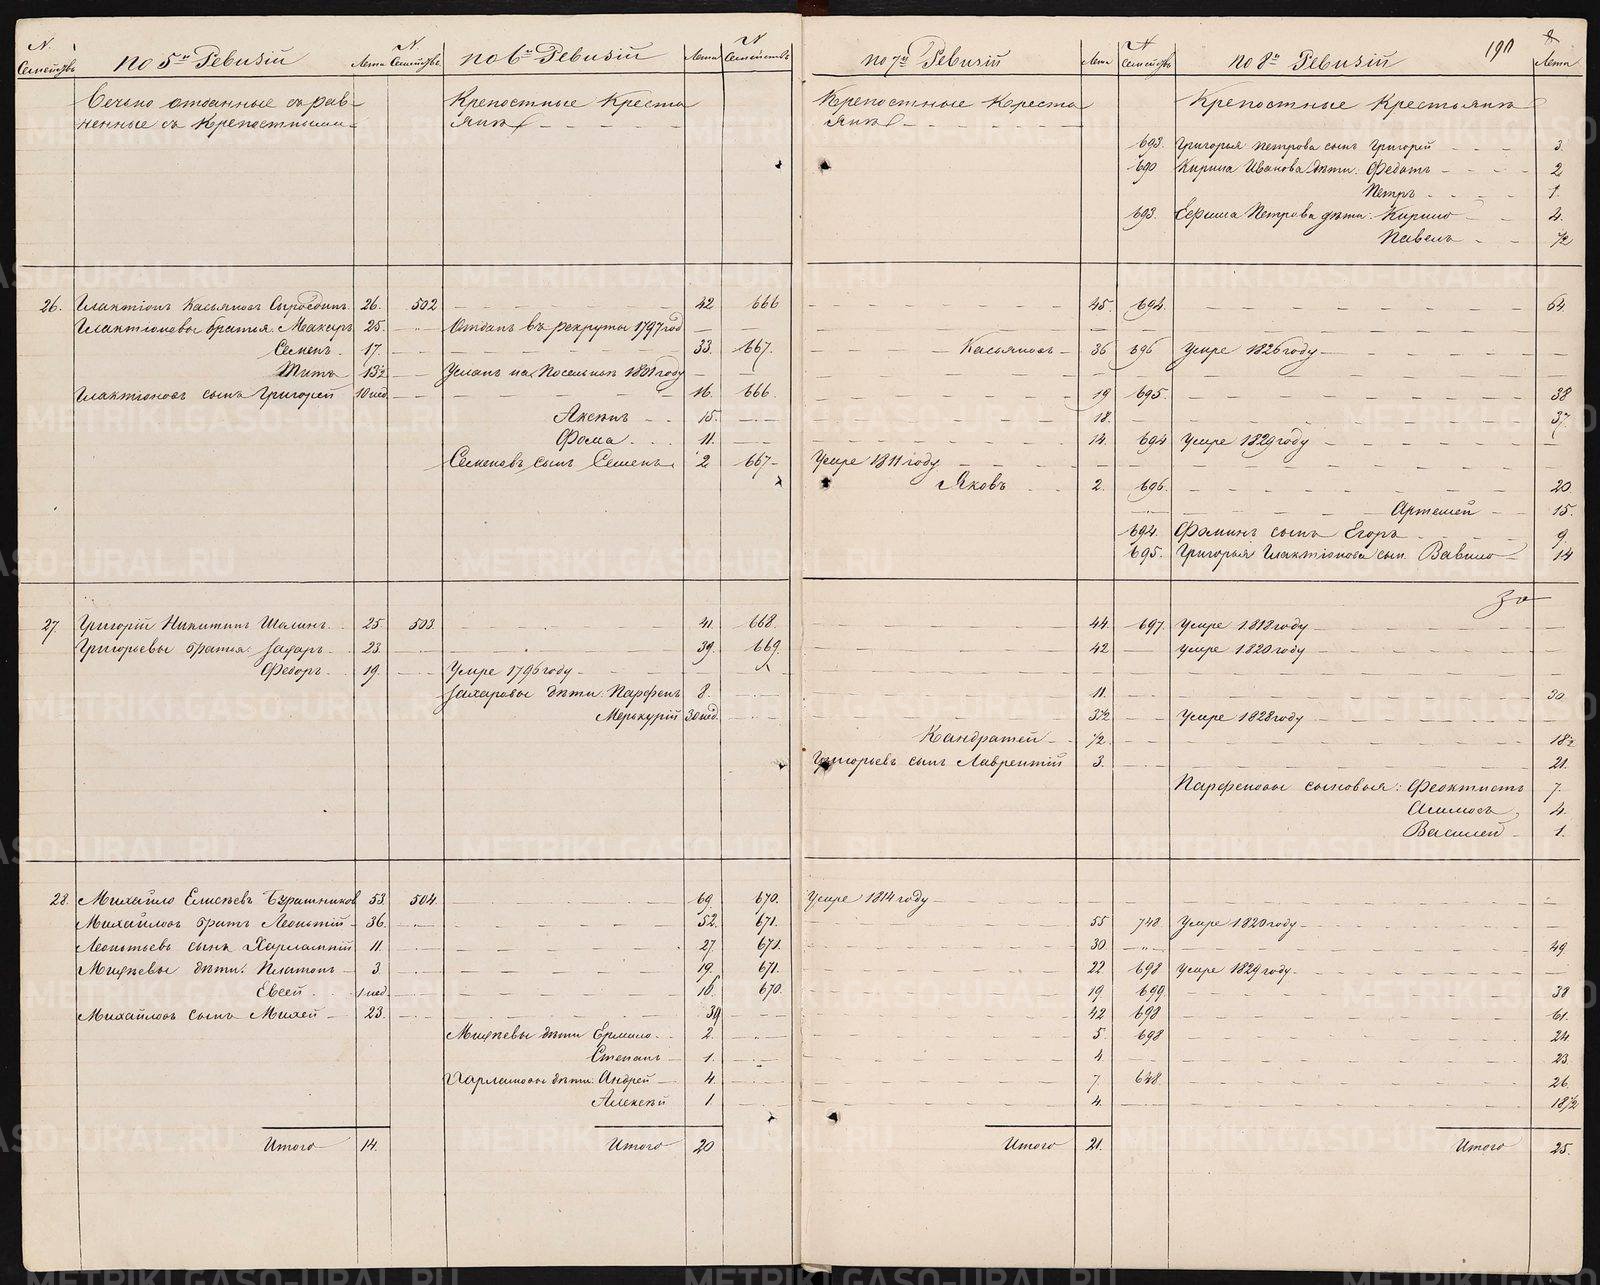 N. Семействъ по 5й Ревизіи Лета N Семействъ по 6й Ревизіи Лета N Семействъ по 7й Ревизіи Лета N Семействъ по 8й Ревизіи 190 Лета
Вечно отданные с рав- Крепостные Креста Крепостные Креста Крепостные Крестьянъ
ненные съ Крепостными янъ янъ
693. Григорья Петрова сынъ Григорей 3.
690 Кирила Иванова дети: Федотъ 2
Петръ 1.
693. Ефима Петрова дети: Кирило 2.
Павелъ 1/2
26. Галактіонъ Касьяновъ 26. 502 42 666 45. 694. 64.
Галактіоновы братья: Макаръ 25. Отданъ въ рекруты 1797 год
Семенъ 17. 33. 667. Касьяновъ 36 696 Умре 1826 году
Титъ 13 1/2 на Поселенье 1801 году
Галактіоновъ сынъ Григорей 10 нед. 16. 666. 19 695. 38
Аксенъ 15. 18. 37.
Фома 11. 14. 694 Умре 1829 году
Семеновъ сынъ Семенъ 2 667 Умре 1811 году
Яковъ 2. 696. 20.
Артемей 15.
694. Фоминъ сынъ Егоръ 9.
695. Григорья Галактіонова сын. Вавило 14
27. Григорій Никитинъ Шалинъ 25. 503. 41. 668. 44. 697. Умре 1818 году
Григорьевы братья: Захаръ 23. 39. 669. 42 умре 1820 году
Федоръ 19. Умре 1796 году
Захаровы дети: Парфенъ 8. 11. 30.
Меркурій 30 нед. 3 1/2 Умре 1828 году
Кандратей 1/2. 18 1/2
Григорьевъ сынъ Лаврентій 3. 21.
Парфеновы сыновья: Феоктистъ 7.
4.
Василей 1.
28. Михайло Елисеевъ 53. 504. 69. 670. Умре 1814 году
Михайловъ братъ Леонтій 36. 52. 671. 55 748. Умре 1820 году
Леонтьевъ сынъ Харлампій 11. 27. 671. 30 49.
Михеевы дети: Платонъ 3. 19. 671. 22. 698 Умре 1829 году
Евсей 1 нед. 16. 670. 19 699. 38
Михайловъ сынъ Михей 23. 39 42 698 61.
Михеевы дети Ермило 2. 5. 698 24.
Степанъ 1. 4. 23.
Харламовы дети: Андрей 4. 7. 648. 26.
Алексей 1. 4. 18 1/2
Итого 14. Итого 20 Итого 21. Итого 25.
METRIKI.GASO-URAL.RU